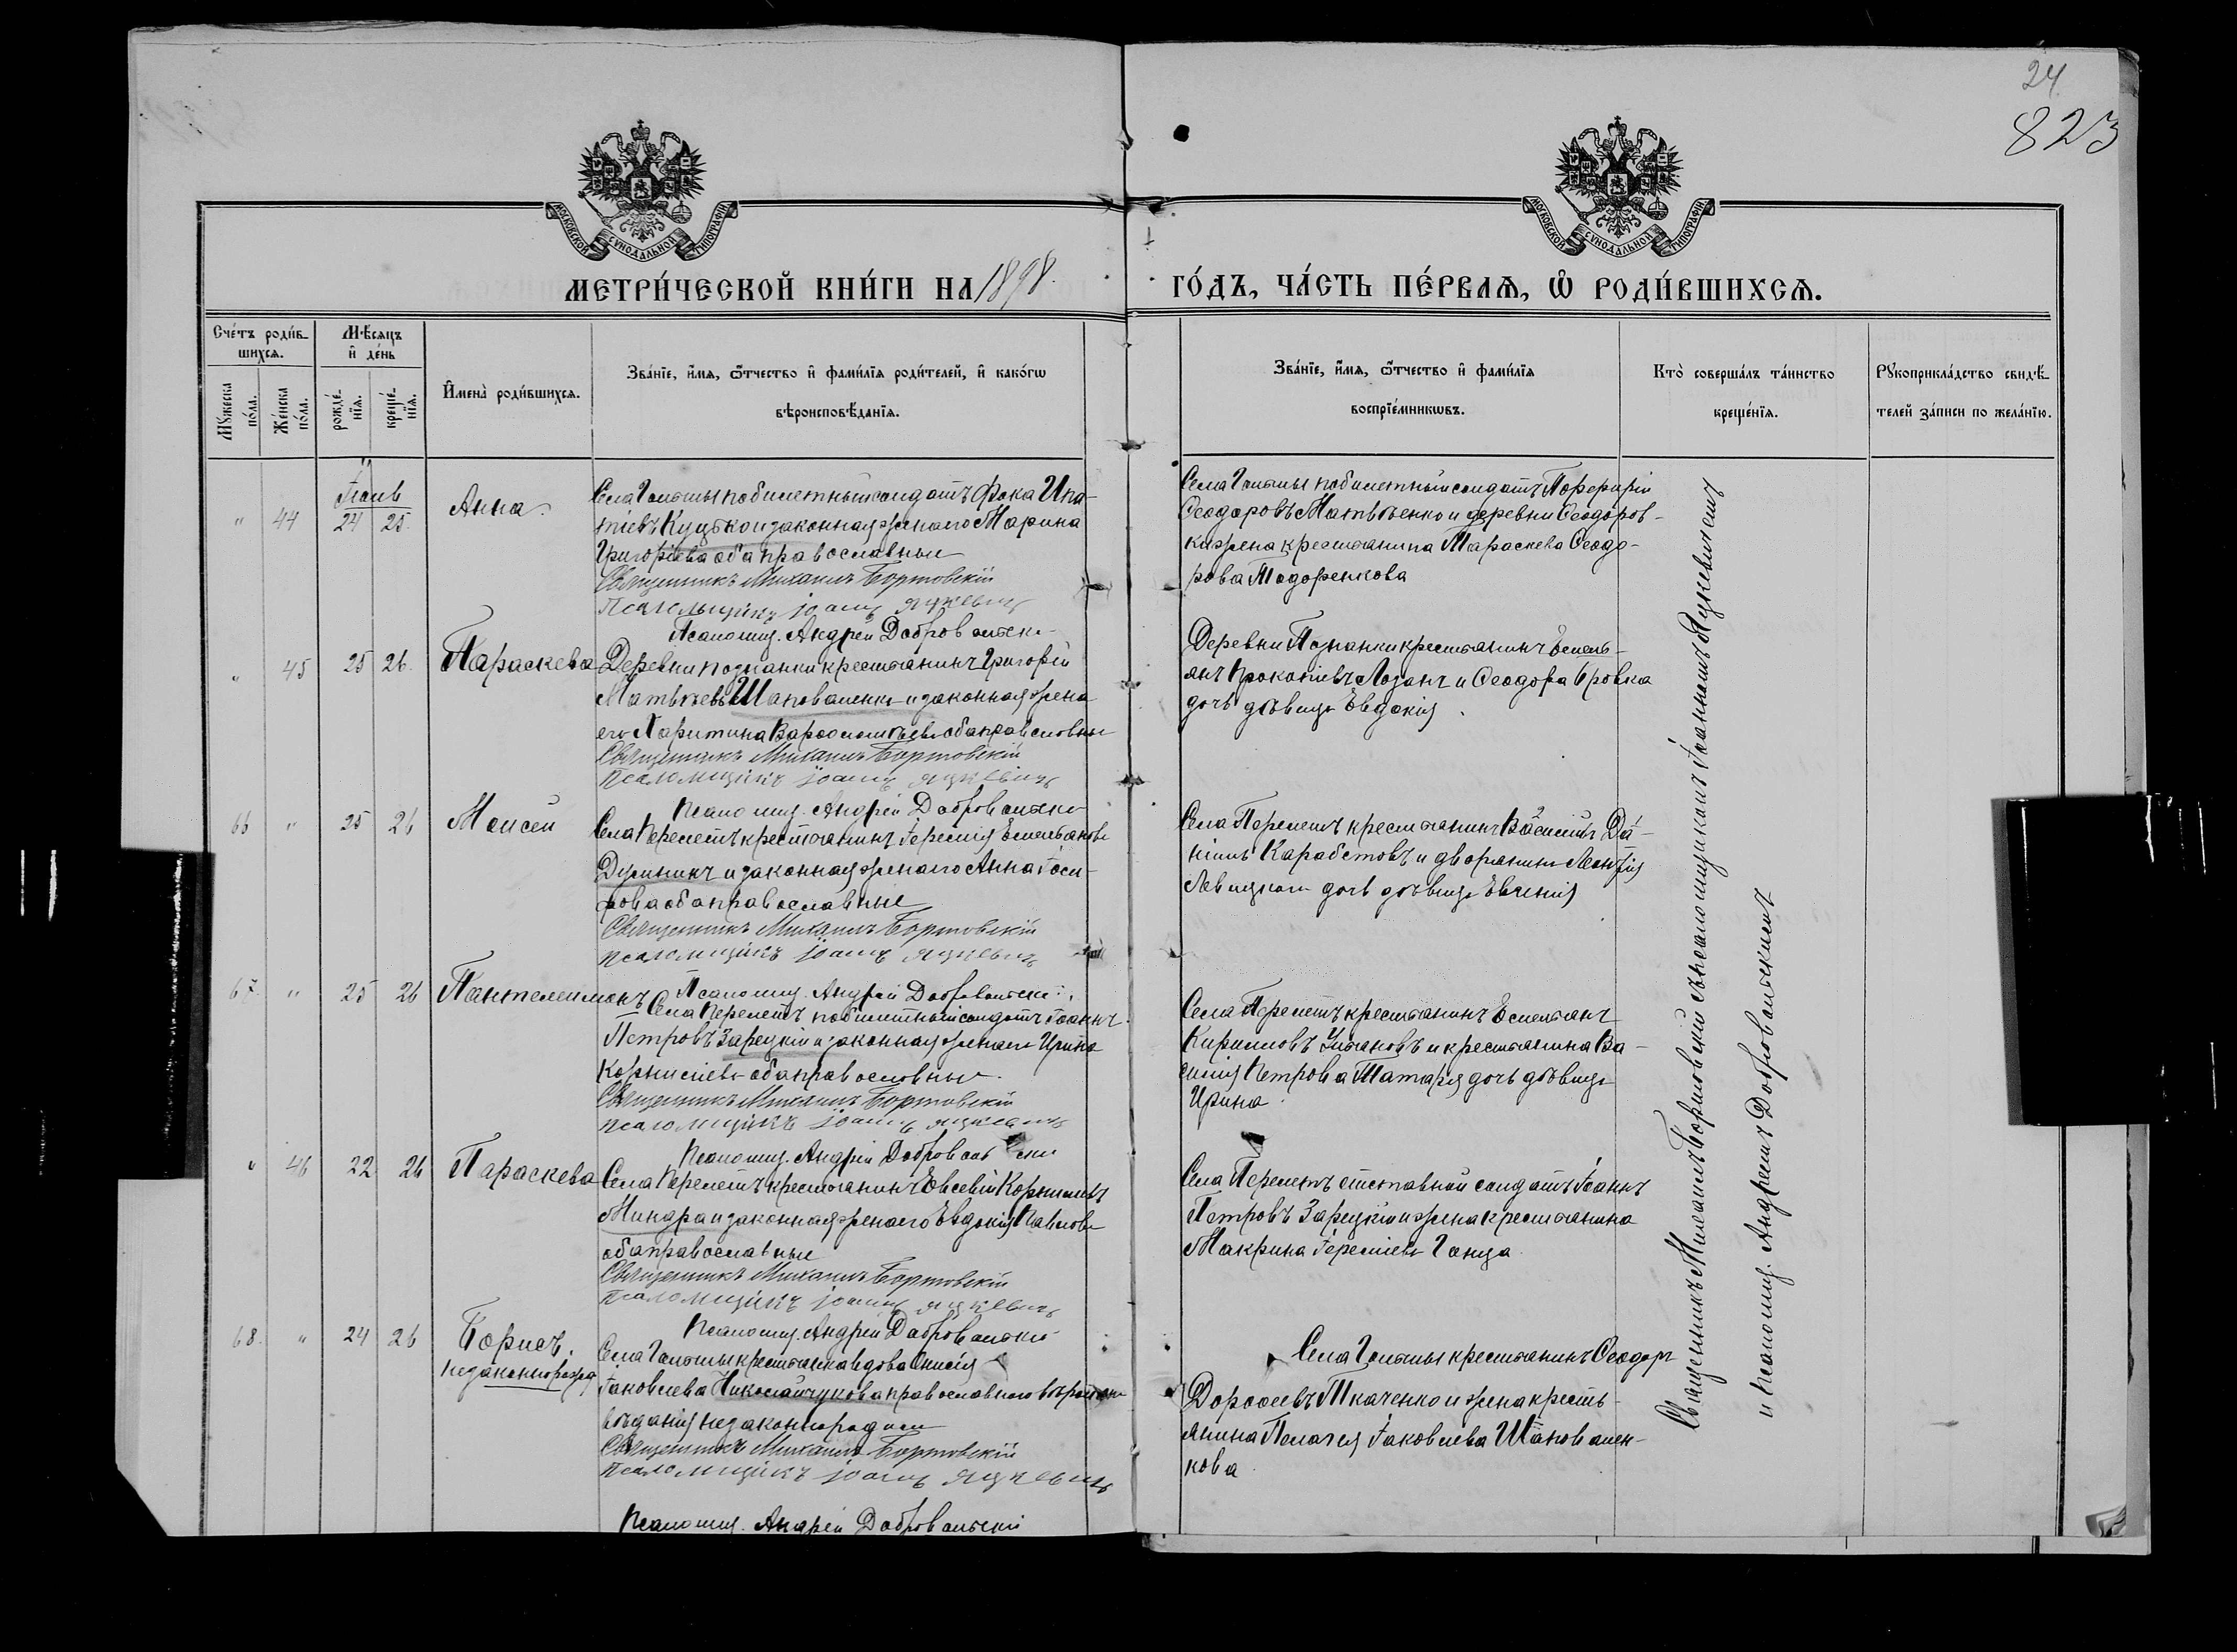 24
823
МОСКОВСКОЙ СѴНОДАЛЬНОЙ ТИПОГРАФІИ
МОСКОВСКОЙ СѴНОДАЛЬНОЙ ТИПОГРАФІИ
МЕТРИ́ЧЕСКОЙ КНИ́ГИ НА 1898.
ГО́ДЪ, ЧА́СТЬ ПЕ́РВАѦ, Ѡ҆ РОДИ́ВШИХСѦ.
Сче́тъ роди́в-
шихсѧ.
Мꙋжеска по́ла.
Же́нска по́ла.
Мѣ́сяцъ
и҆ де́нь
рожде́-
нїѧ.
креще́-
нїѧ.
И҆мена̀ роди́вшихсѧ.
Зва́нїе, и҆́мѧ, ѻ҆́тчество и҆ фами́лїѧ роди́телей, и҆ како́гѡ
вѣроисповѣ́данїѧ.
Зва́нїе, и҆́мѧ, ѻ҆́тчество и҆ фами́лїѧ
воспрїе́мникѡвъ.
Кто̀ соверша́лъ та́инство
креще́нїѧ.
Рꙋкоприкла́дство свидѣ́-
телей за́писи по жела́нїю.
" 44 24 25. Анна.
Села Гольмы побилетный солдатъ Фока Ипа-
тіевъ Куцько и законная жена его Марина
Григоріева оба православные
Священникъ Михаилъ Бортовскій
Псаломщикъ Іоаннъ Яцкевичъ
Псаломщ. Андрей Добровольскій
Села Гольмы побилетный солдатъ Порфирій
Ѳеодоровъ Матвѣенко и деревни Ѳеодоров-
ки жена крестьянина Параскева Ѳеодо-
рова Тодоренкова
" 45 25 26. Параскева
Деревни Познанки крестьянинъ Григорій
Матвѣевъ Шаповаленко и законная жена
его Харитина Варѳоломѣева оба православные
Священникъ Михаилъ Бортовскій
Псаломщикъ Іоаннъ Яцкевичъ
Псаломщ. Андрей Добровольскій
Деревни Познанки крестьянинъ Емель-
янъ Прокопіевъ Лозанъ и Ѳеодора Бровка
дочь дѣвица Евдокія.
66 " 25 26 Моисей
Села Перелетъ крестьянинъ Іеремія Емельяновъ
и законная жена его Анна Іоси-
фова оба православные
Священникъ Михаилъ Бортовскій
Псаломщикъ Іоаннъ Яцкевичъ
Псаломщ. Андрей Добровольскій
Села Перелетъ крестьянинъ Василій Да-
ніиловъ Карабетовъ и дворянина Леонтія
Левицкаго дочь дѣвица Евгенія
67. " 25 26 Пантелеимонъ
Села Перелетъ побилетный солдатъ Іоаннъ
Петровъ Зарецкій и законная жена его Ирина
Корниліева оба православные
Священникъ Михаилъ Бортовскій
Псаломщикъ Іоаннъ Яцкевичъ
Псаломщ. Андрей Добровольскій
Села Перелетъ крестьянинъ Емельянъ
Кирилловъ Ульяновъ и крестьянина Ва-
силія Петрова Татарія дочь дѣвица
Ирина
" 46 22 26 Параскева
Села Перелетъ крестьянинъ Евсевій Корниліевъ
Миндра и законная жена его Евдокія Павлова
оба православные
Священникъ Михаилъ Бортовскій
Псаломщикъ Іоаннъ Яцкевичъ
Псаломщ. Андрей Добровольскій
Села Перелетъ отставной солдатъ Іоаннъ
Петровъ Зарецкій и жена крестьянина
Макрина Іереміева Ганца
68. " 24 26 Борисъ.
незаконнорожд
Села Гольмы крестьянка вдова Онисія
Іаковлева Николайчукова православнаго вѣроиспо-
вѣданія незаконнородила
Священникъ Михаилъ Бортовскій
Псаломщикъ Іоаннъ Яцкевичъ
Псаломщ. Андрей Добровольскій
Села Гольмы крестьянинъ Ѳеодоръ
Дороѳеевъ Ткаченко и жена кресть-
янина Пелагея Іаковлева Шаповален-
кова
Священникъ Михаилъ Бортовскій съ псаломщикомъ Іоанномъ Яцкевичемъ
и псаломщ. Андреемъ Добровольскимъ